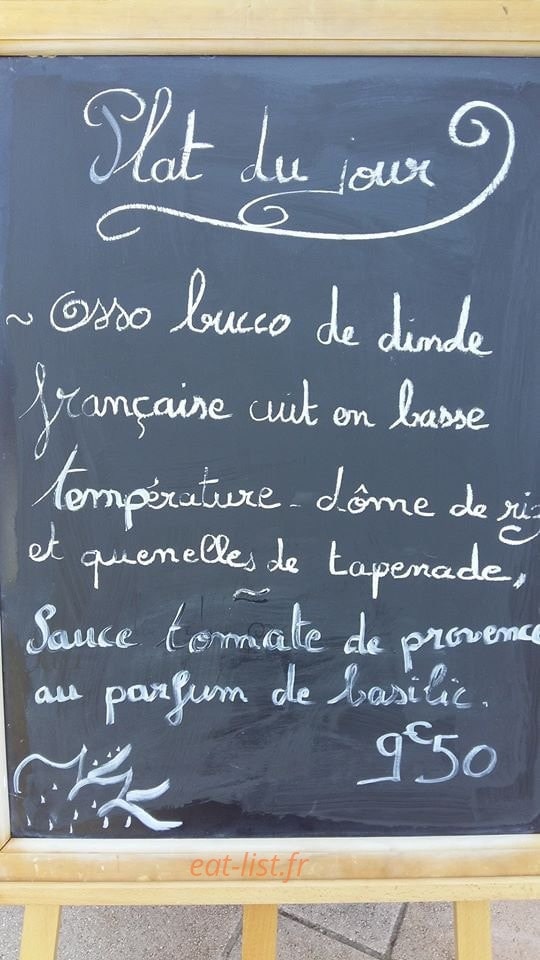 Plat du jour
~ Osso bucco de dinde
française cuit en basse
température - dôme de riz
et quenelles de tapenade,
~
Sauce tommate de provence
au parfum de basilic.
9€50
eat-list.fr